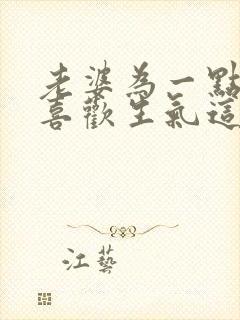 老婆為一點
喜歡生氣這
江藝